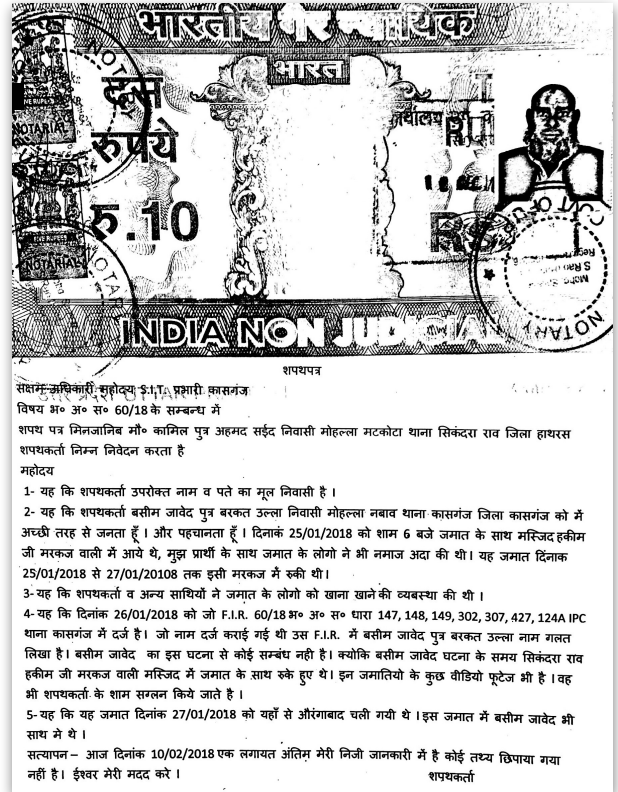 भारतीय गैर न्यायिक
भारत
दस
रुपये
रु.10
INDIA NON JUDICIAL
NOTARIAL
NOTARIAL
NOTARY
NOTARY
NOTARY
शपथपत्र
सक्षम अधिकारी महोदय S.I.T. प्रभारी कासगंज
विषय भ० अ० स० 60/18 के सम्बन्ध में
शपथ पत्र मिनजानिब मौ० कामिल पुत्र अहमद सईद निवासी मोहल्ला मटकोटा थाना सिकंदरा राव जिला हाथरस
शपथकर्ता निम्न निवेदन करता है
महोदय
1- यह कि शपथकर्ता उपरोक्त नाम व पते का मूल निवासी है ।
2- यह कि शपथकर्ता बसीम जावेद पुत्र बरकत उल्ला निवासी मोहल्ला नबाव थाना कासगंज जिला कासगंज को में
अच्छी तरह से जनता हूँ । और पहचानता हूँ । दिनाकं 25/01/2018 को शाम 6 बजे जमात के साथ मस्जिद हकीम
जी मरकज वाली में आये थे, मुझ प्रार्थी के साथ जमात के लोगो ने भी नमाज अदा की थी। यह जमात दिंनाक
25/01/2018 से 27/01/20108 तक इसी मरकज में रुकी थी।
3- यह कि शपथकर्ता व अन्य साथियों ने जमात के लोगो को खाना खाने की व्यबस्था की थी ।
4- यह कि दिनांक 26/01/2018 को जो F.I.R. 60/18 भ० अ० स० धारा 147, 148, 149, 302, 307, 427, 124A IPC
थाना कासगंज में दर्ज है। जो नाम दर्ज कराई गई थी उस F.I.R. में बसीम जावेद पुत्र बरकत उल्ला नाम गलत
लिखा है। बसीम जावेद का इस घटना से कोई सम्बंध नही है। क्योकि बसीम जावेद घटना के समय सिकंदरा राव
हकीम जी मरकज वाली मस्जिद में जमात के साथ रुके हुए थे। इन जमातियो के कुछ वीडियो फूटेज भी है ।वह
भी शपथकर्ता के शाम सग्लन किये जाते है ।
5- यह कि यह जमात दिनांक 27/01/2018 को यहाँ से औरंगाबाद चली गयी थे ।इस जमात में बसीम जावेद भी
साथ मे थे ।
सत्यापन – आज दिनांक 10/02/2018 एक लगायत अंतिम मेरी निजी जानकारी में है कोई तथ्य छिपाया गया
नहीं है। ईश्वर मेरी मदद करे ।
शपथकर्ता